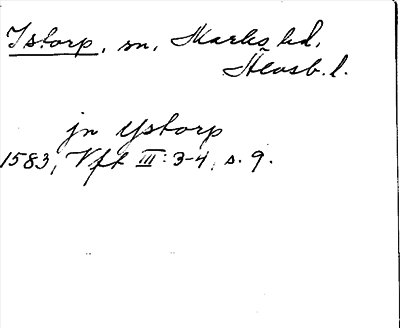 Istorp, sn, Marks hd,
Älvsb. l.
jn ystorp
1583, Vft III: 3-4, s. 9.